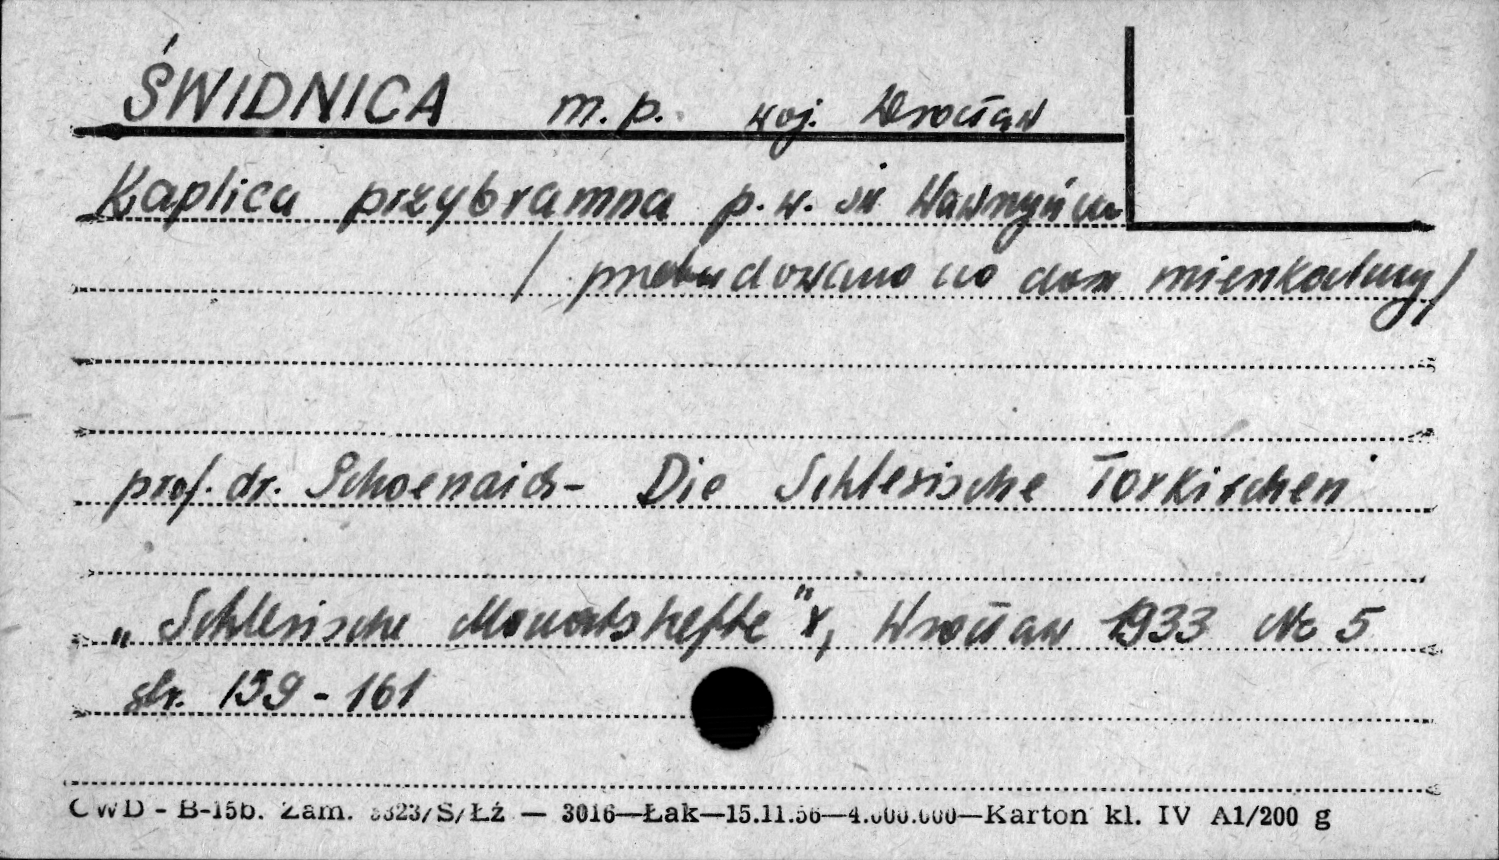 ŚWIDNICA m.p. woj. Wrocław
Kaplica przybramna p.w. św Wawrzyńca
/ przebudowano na dom mieszkalny/
prof. dr. Schoenaich - Die Schlesische Torkirchen
„Schlesische Monatshefte" X, Wrocław 1933 Nr 5
str. 159-161
CWD - B-15b. Zam. 3323/S/Łź — 3016—Łak—15.11.56—4.000.000—Karton kl. IV A1/200 g